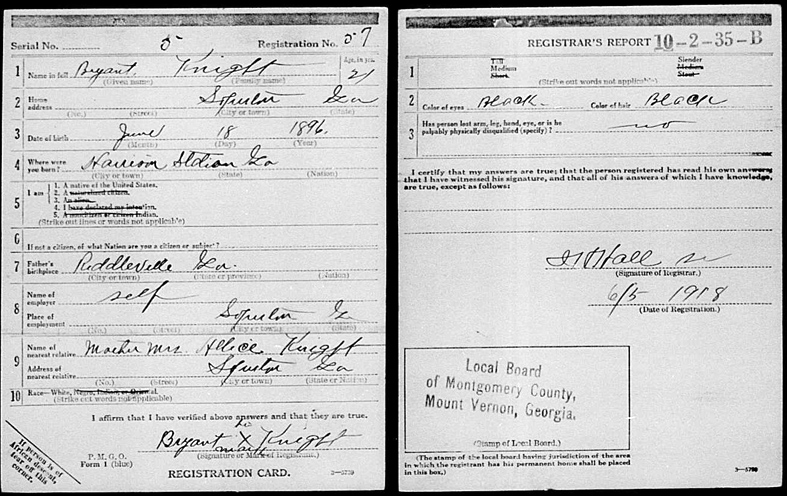 Serial No. 5 Registration No. 57
1 Name in full Bryant Knight Age, in yrs. 21
(Given name) (Family name)
2 Home address Soperton Ga
(No.) (Street) (City or town) (State)
3 Date of birth June 18 1896.
(Month) (Day) (Year)
4 Where were you born? Harrison Ga
(City or town) (State) (Nation)
5 I am
1. A native of the United States.
2. A naturalized citizen.
3. An alien.
4. I have declared my intention.
5. A noncitizen or citizen Indian.
(Strike out lines or words not applicable)
6
If not a citizen, of what Nation are you a citizen or subject?
7 Father's birthplace Riddleville Ga.
(City or town) (State or province) (Nation)
8 Name of employer self
Place of employment Soperton Ga
(No.) (Street) (City or town) (State)
9 Name of nearest relative Mother Mrs. Allice Knight
Address of nearest relative Ga
(No.) (Street) (City or town) (State or Nation)
10 Race—White, Negro, Indian, or Oriental.
(Strike out words not applicable)
I affirm that I have verified above answers and that they are true.
his
Bryant X Knight
mark
(Signature or Mark of Registrant.)
P. M. G. O.
Form 1 (blue)
REGISTRATION CARD. 3—5739
If person is of
African descent,
tear off this
corner.
REGISTRAR'S REPORT 10-2-35-B
1
Tall Slender
Medium Medium
Short Stout
(Strike out words not applicable)
2 Color of eyes Black Color of hair Black
3 Has person lost arm, leg, hand, eye, or is he palpably physically disqualified (specify)? no
I certify that my answers are true; that the person registered has read his own answers;
that I have witnessed his signature, and that all of his answers of which I have knowledge,
are true, except as follows:
Hall
(Signature of Registrar.)
6/5 1918
(Date of Registration.)
Local Board
of Montgomery County,
Mount Vernon, Georgia.
(Stamp of Local Board.)
(The stamp of the local board having jurisdiction of the area
in which the registrant has his permanent home shall be placed
in this box.) 3—5739